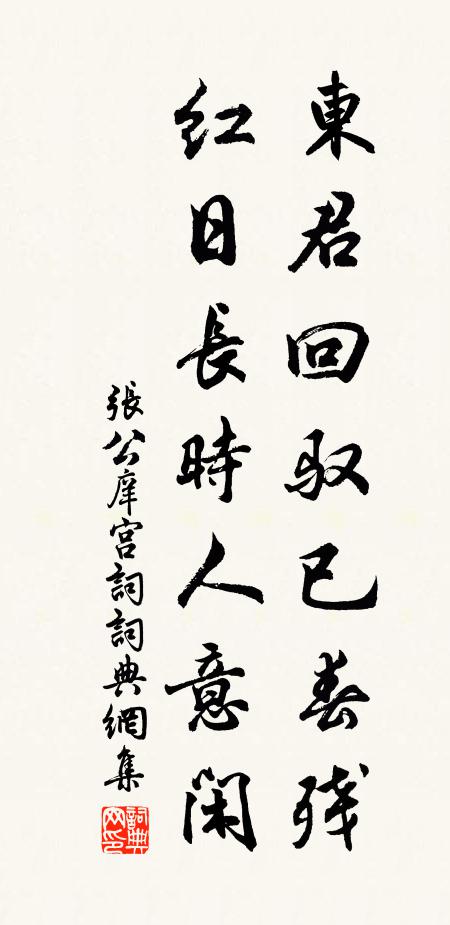 東君回馭已春殘
紅日長時人意閑
張公庠宮詞詞典網集
詞典網印